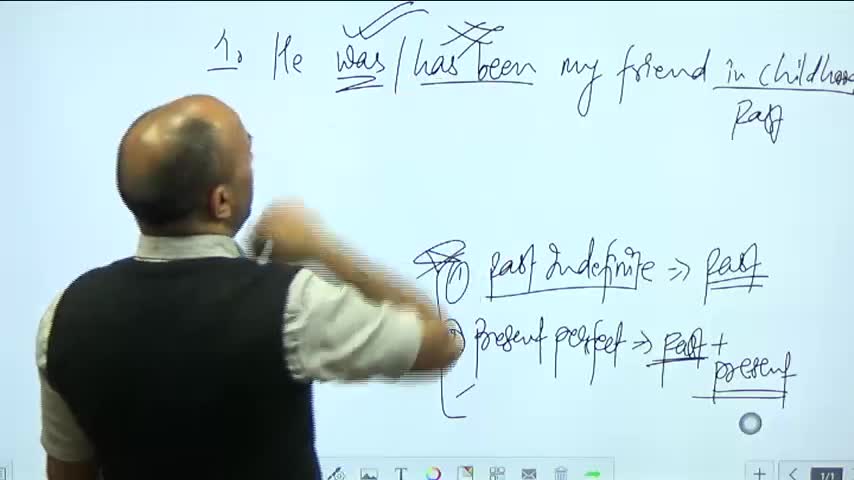 1. He was / has been my friend in childhood
Past
① Past Indefinite => Past
② Present perfect => past +
present
T
+ < 1/1